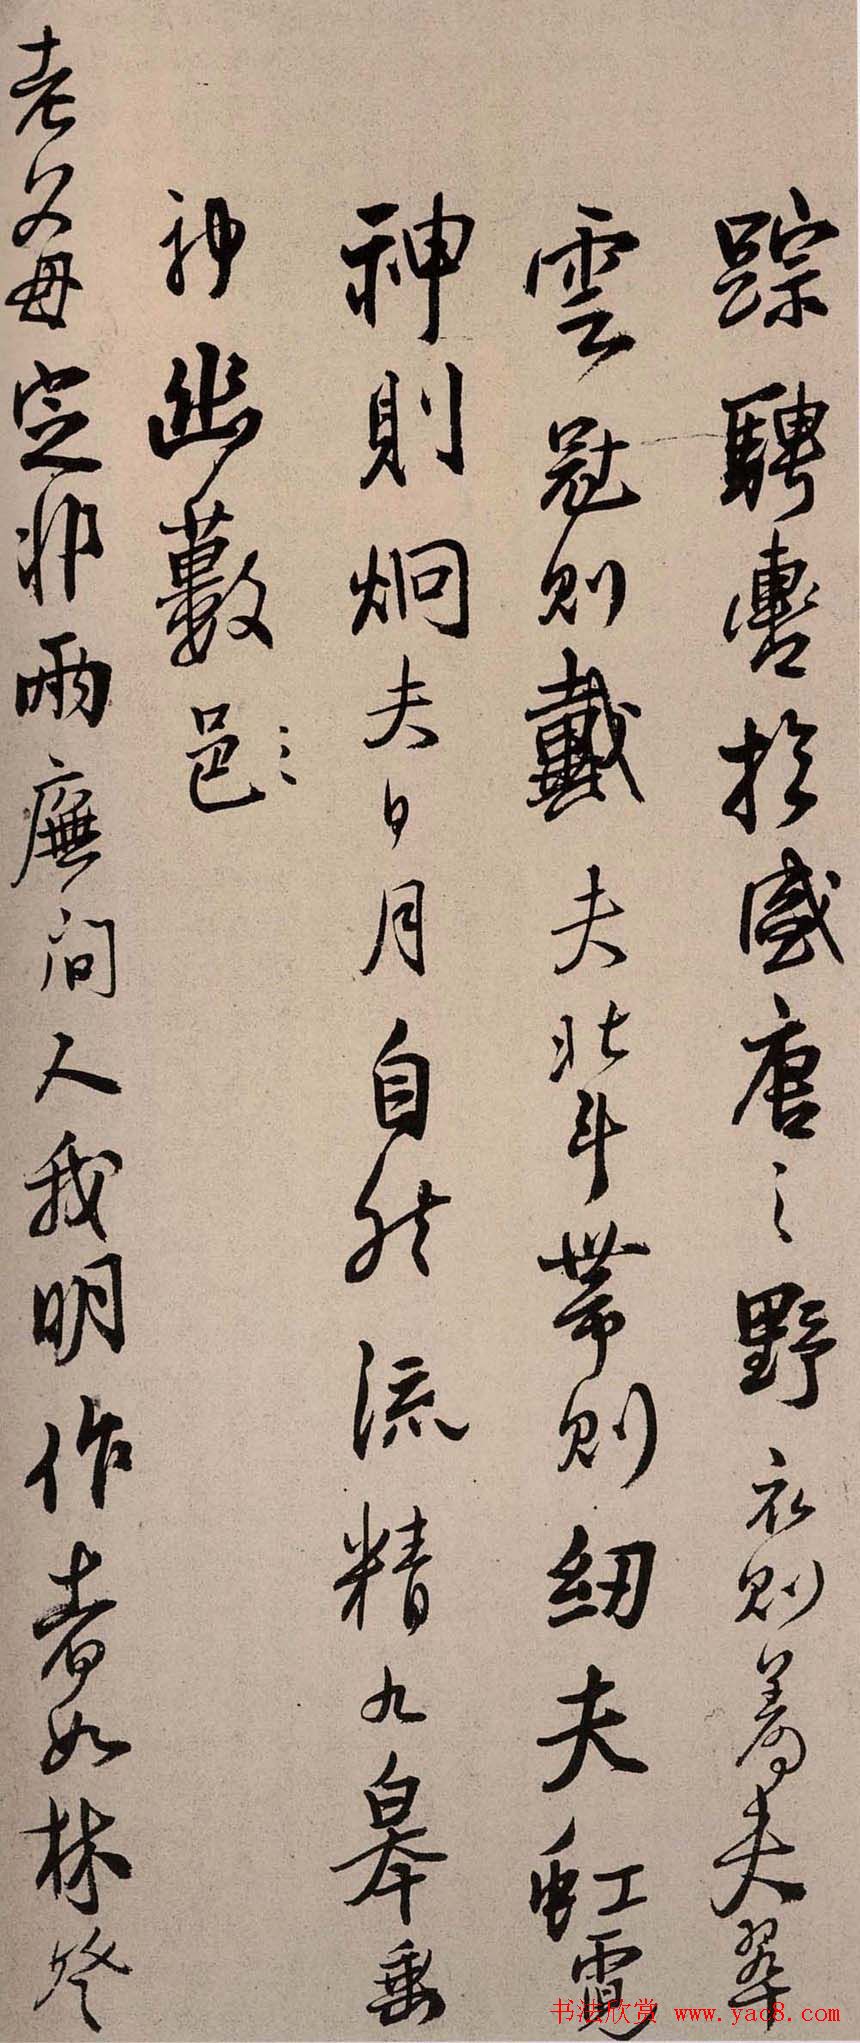 踪騁轡於盛唐之野衣則著夫翠
雲冠則戴夫北斗帶則紉夫虹霓
神則炯夫日月自然流精九皋垂
神幽藪邑〻
老父母定非兩廡間人我明作者如林登
书法欣赏 www.yac8.com